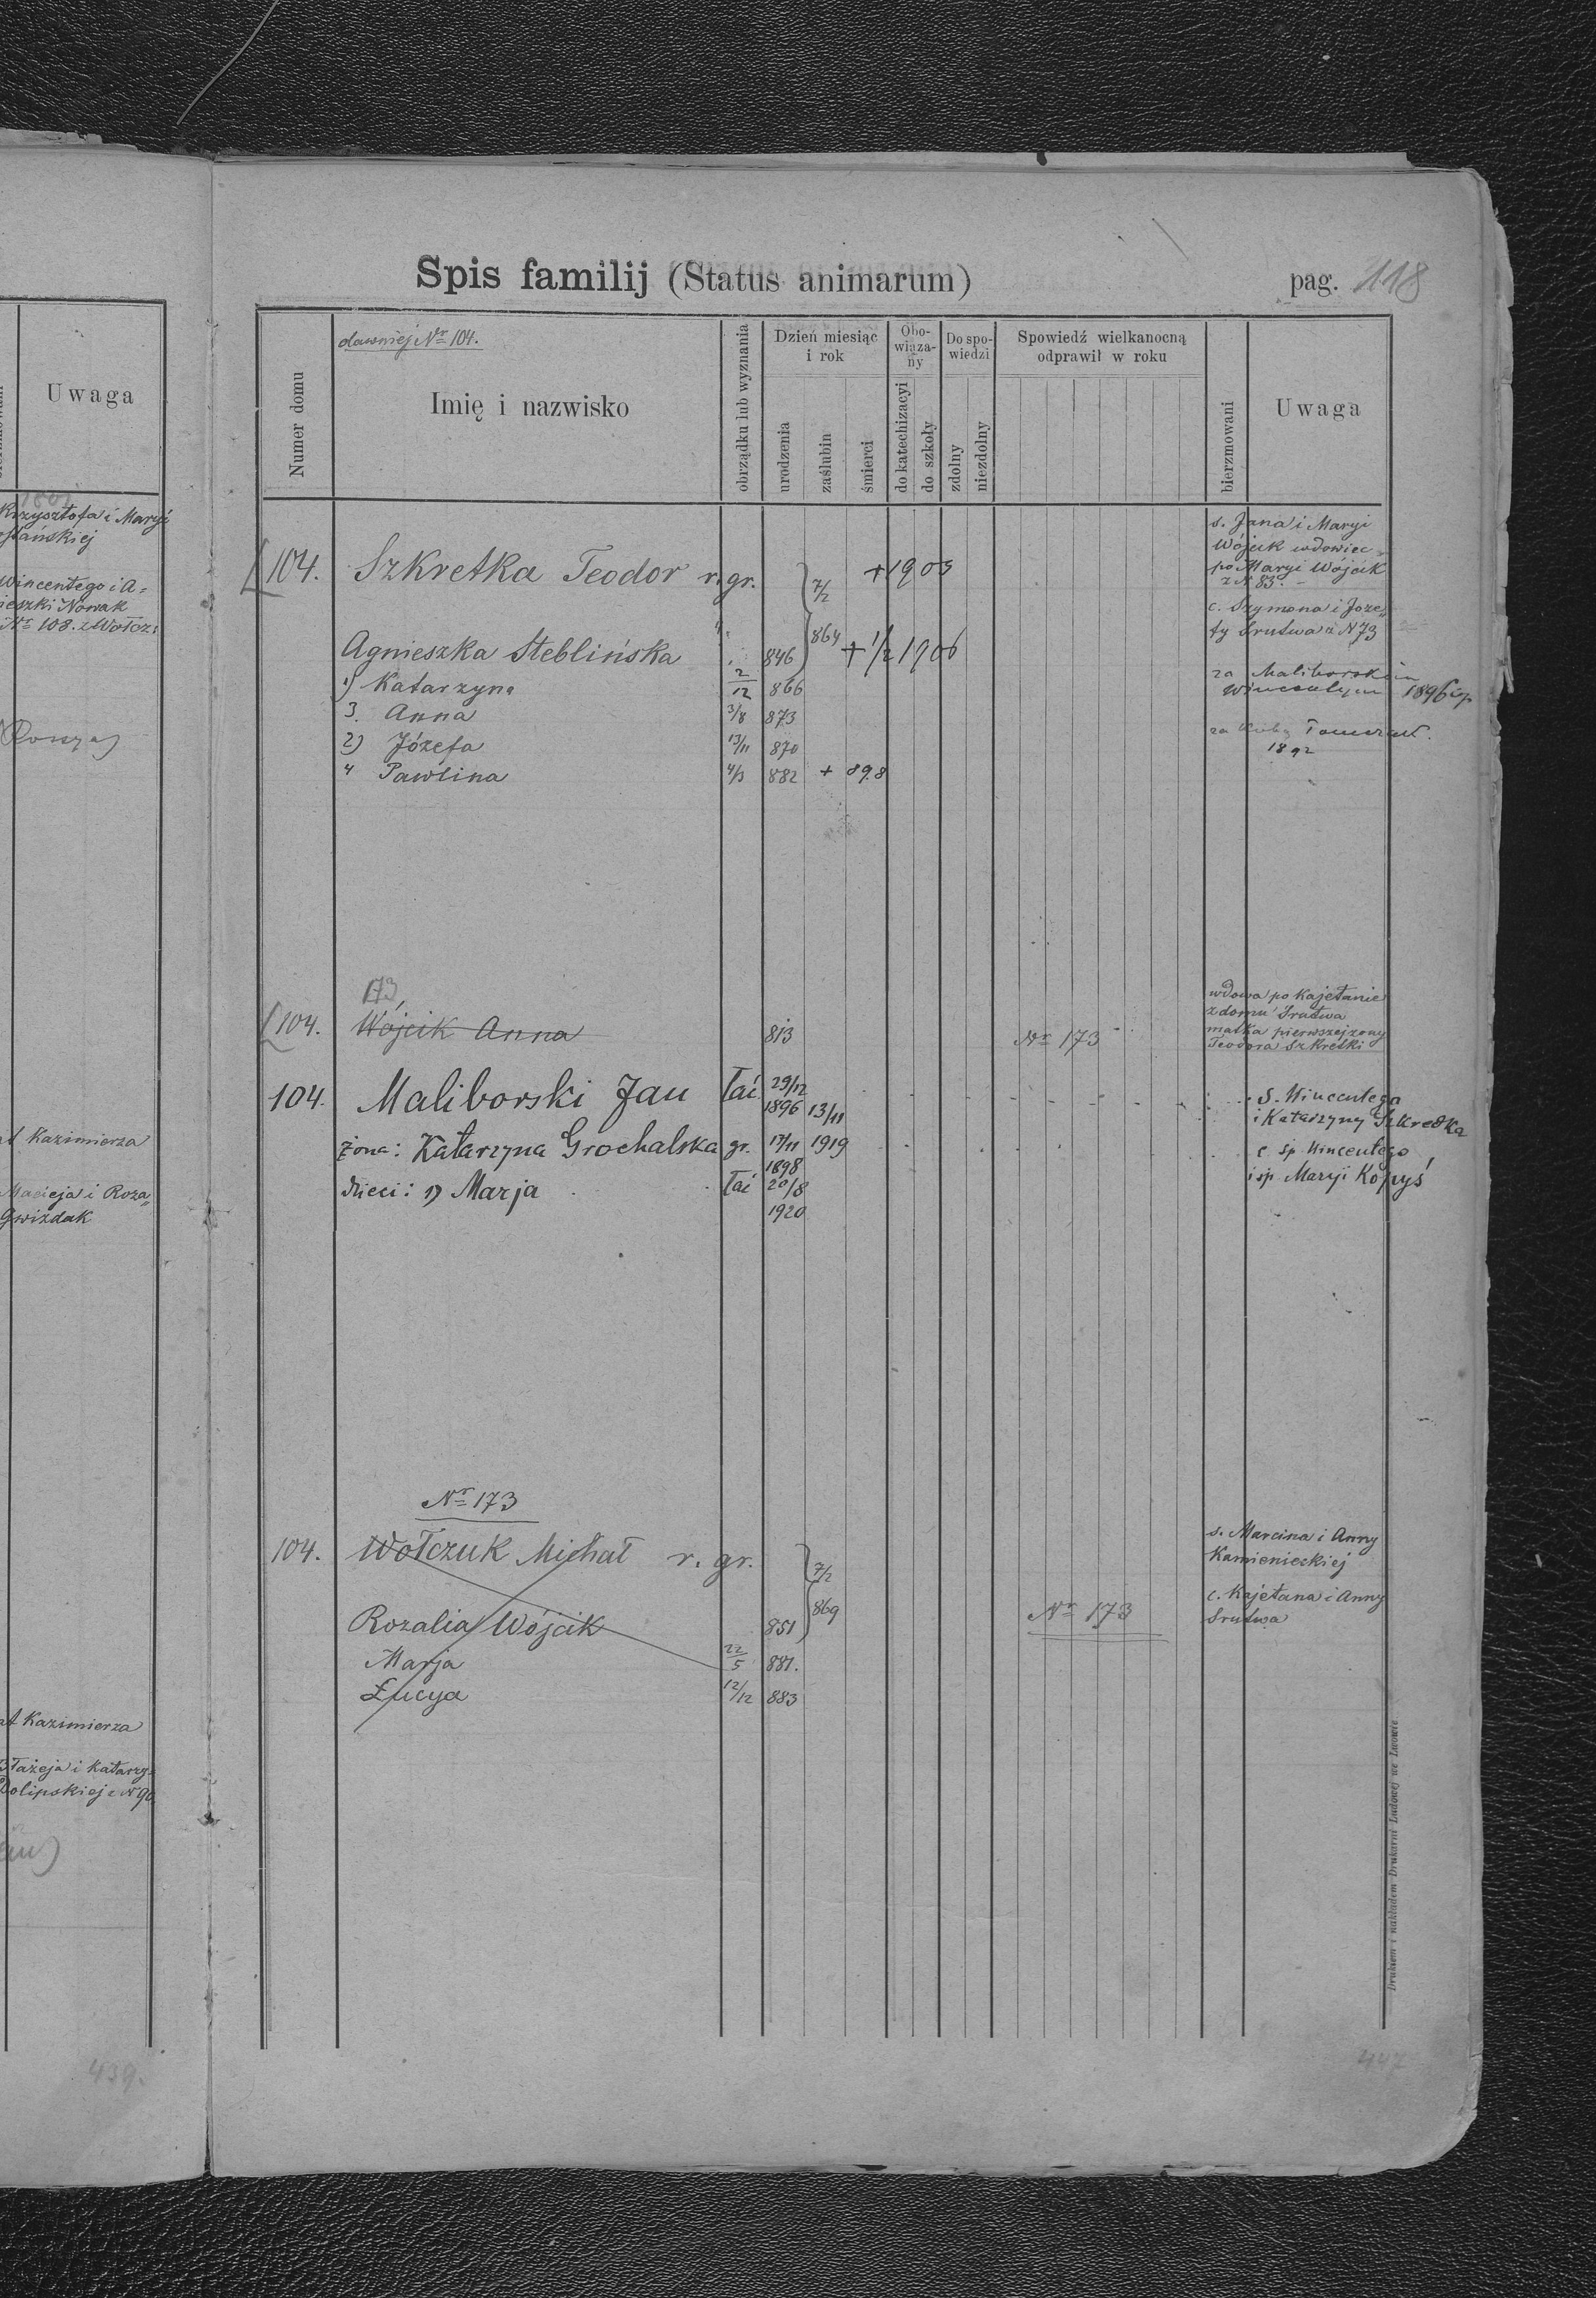 Uwaga
Krzysztofa i Maryi
Wincentego i A=
ieszki Nowak
Nr 108. z Wołcz:
t Kazimierza
Macieja i Roza„
Gwizdak
t Kazimierza
Błażeja i Katarzy=
Dolipskiej z N 90
439.
Spis familij (Status animarum)
pag. 118
Numer domu
dawniej Nr 104.
Imię i nazwisko
obrządku lub wyznania
Dzień miesiąc
i rok
urodzenia
zaślubin
śmierci
Obo-
wiąza-
ny
do katechizacyi
do szkoły
Do spo-
wiedzi
zdolny
niezdolny
Spowiedź wielkanocną
odprawił w roku
bierzmowani
Uwaga
104. Szkretka Teodor r. gr. 7/2 +1903
s. Jana i Maryi
Wójcik wdowiec
po Maryi Wójcik
z N 83.
Agnieszka Steblińska 846 864 + 1/2 1906
c. Szymona i Joze„
fy Srutwa z N 73
1) Katarzyna 2/12 866
za Maliborskim
Wincentym 1896
3. Anna 3/8 873
2) Józefa 13/11 870
za Kubą
1892
4 Pawlina 4/3 882 + 898
173
104. Wójcik Anna 813 Nr 173
wdowa po Kajetanie
z domu Srutwa
matka pierwszej żony
Teodora Szkretki
104. Maliborski Jan łać 29/12 1896 13/11
s. Wincentego
i Katarzyny Szkretka
żona: Katarzyna Grochalska gr. 17/11 1898 1919
c. śp. Wincentego
i śp Maryi Kopyś
dzieci: 1) Marja łać 20/8
1920
Nr 173
104. Wołczuk Michał r. gr. 7/2
s. Marcina i Anny
Kamienieckiej
Rozalia Wójcik 851 869 Nr 173
c. Kajetana i Anny
Srutwa
Marja 22/5 881.
Łucya 12/12 883
Drukiem i nakładem Drukarni Ludowej we Lwowie
447